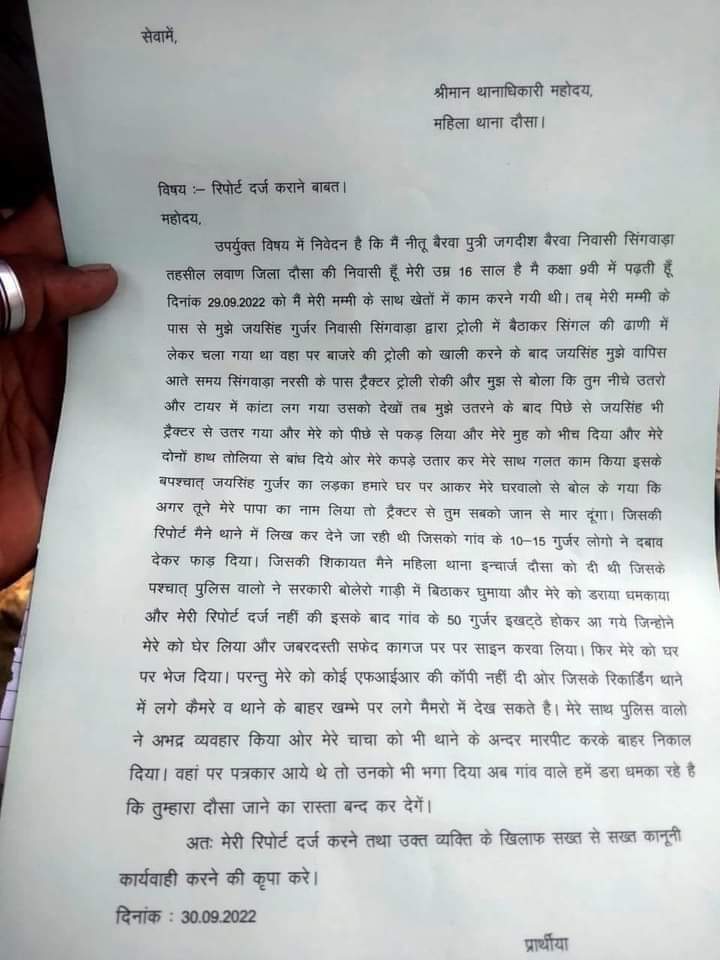 सेवामें,
श्रीमान थानाधिकारी महोदय,
महिला थाना दौसा।
विषय :– रिपोर्ट दर्ज कराने बाबत।
महोदय,
उपर्युक्त विषय में निवेदन है कि मैं नीतू बैरवा पुत्री जगदीश बैरवा निवासी सिंगवाड़ा
तहसील लवाण जिला दौसा की निवासी हूँ मेरी उम्र 16 साल है मै कक्षा 9वी में पढ़ती हूँ
दिनांक 29.09.2022 को मैं मेरी मम्मी के साथ खेतों में काम करने गयी थी। तब् मेरी मम्मी के
पास से मुझे जयसिंह गुर्जर निवासी सिंगवाड़ा द्वारा ट्रोली में बैठाकर सिंगल की ढाणी में
लेकर चला गया था वहा पर बाजरे की ट्रोली को खाली करने के बाद जयसिंह मुझे वापिस
आते समय सिंगवाड़ा नरसी के पास ट्रैक्टर ट्रोली रोकी और मुझ से बोला कि तुम नीचे उतरो
और टायर में कांटा लग गया उसको देखों तब मुझे उतरने के बाद पिछे से जयसिंह भी
ट्रैक्टर से उतर गया और मेरे को पीछे से पकड़ लिया और मेरे मुह को भीच दिया और मेरे
दोनों हाथ तोलिया से बांध दिये ओर मेरे कपड़े उतार कर मेरे साथ गलत काम किया इसके
बपश्चात् जयसिंह गुर्जर का लड़का हमारे घर पर आकर मेरे घरवालो से बोल के गया कि
अगर तूने मेरे पापा का नाम लिया तो ट्रैक्टर से तुम सबको जान से मार दूंगा। जिसकी
रिपोर्ट मैने थाने में लिख कर देने जा रही थी जिसको गांव के 10–15 गुर्जर लोगो ने दबाव
देकर फाड़ दिया। जिसकी शिकायत मैने महिला थाना इन्चार्ज दौसा को दी थी जिसके
पश्चात् पुलिस वालो ने सरकारी बोलेरो गाड़ी में बिठाकर घुमाया और मेरे को डराया धमकाया
और मेरी रिपोर्ट दर्ज नहीं की इसके बाद गांव के 50 गुर्जर इखट्ठे होकर आ गये जिन्होने
मेरे को घेर लिया और जबरदस्ती सफेद कागज पर पर साइन करवा लिया। फिर मेरे को घर
पर भेज दिया। परन्तु मेरे को कोई एफआईआर की कॉपी नहीं दी ओर जिसके रिकार्डिंग थाने
में लगे कैमरे व थाने के बाहर खम्भे पर लगे मैमरो में देख सकते है। मेरे साथ पुलिस वालो
ने अभद्र व्यवहार किया ओर मेरे चाचा को भी थाने के अन्दर मारपीट करके बाहर निकाल
दिया। वहां पर पत्रकार आये थे तो उनको भी भगा दिया अब गांव वाले हमें डरा धमका रहे है
कि तुम्हारा दौसा जाने का रास्ता बन्द कर देगें।
अतः मेरी रिपोर्ट दर्ज करने तथा उक्त व्यक्ति के खिलाफ सख्त से सख्त कानूनी
कार्यवाही करने की कृपा करे।
दिनांक : 30.09.2022
प्रार्थीया